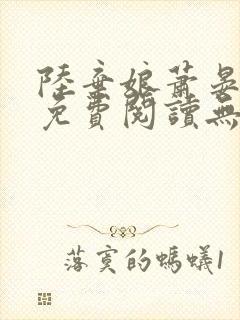 陸棄娘蕭晏
免費閱讀無
落寞的螞蟻1